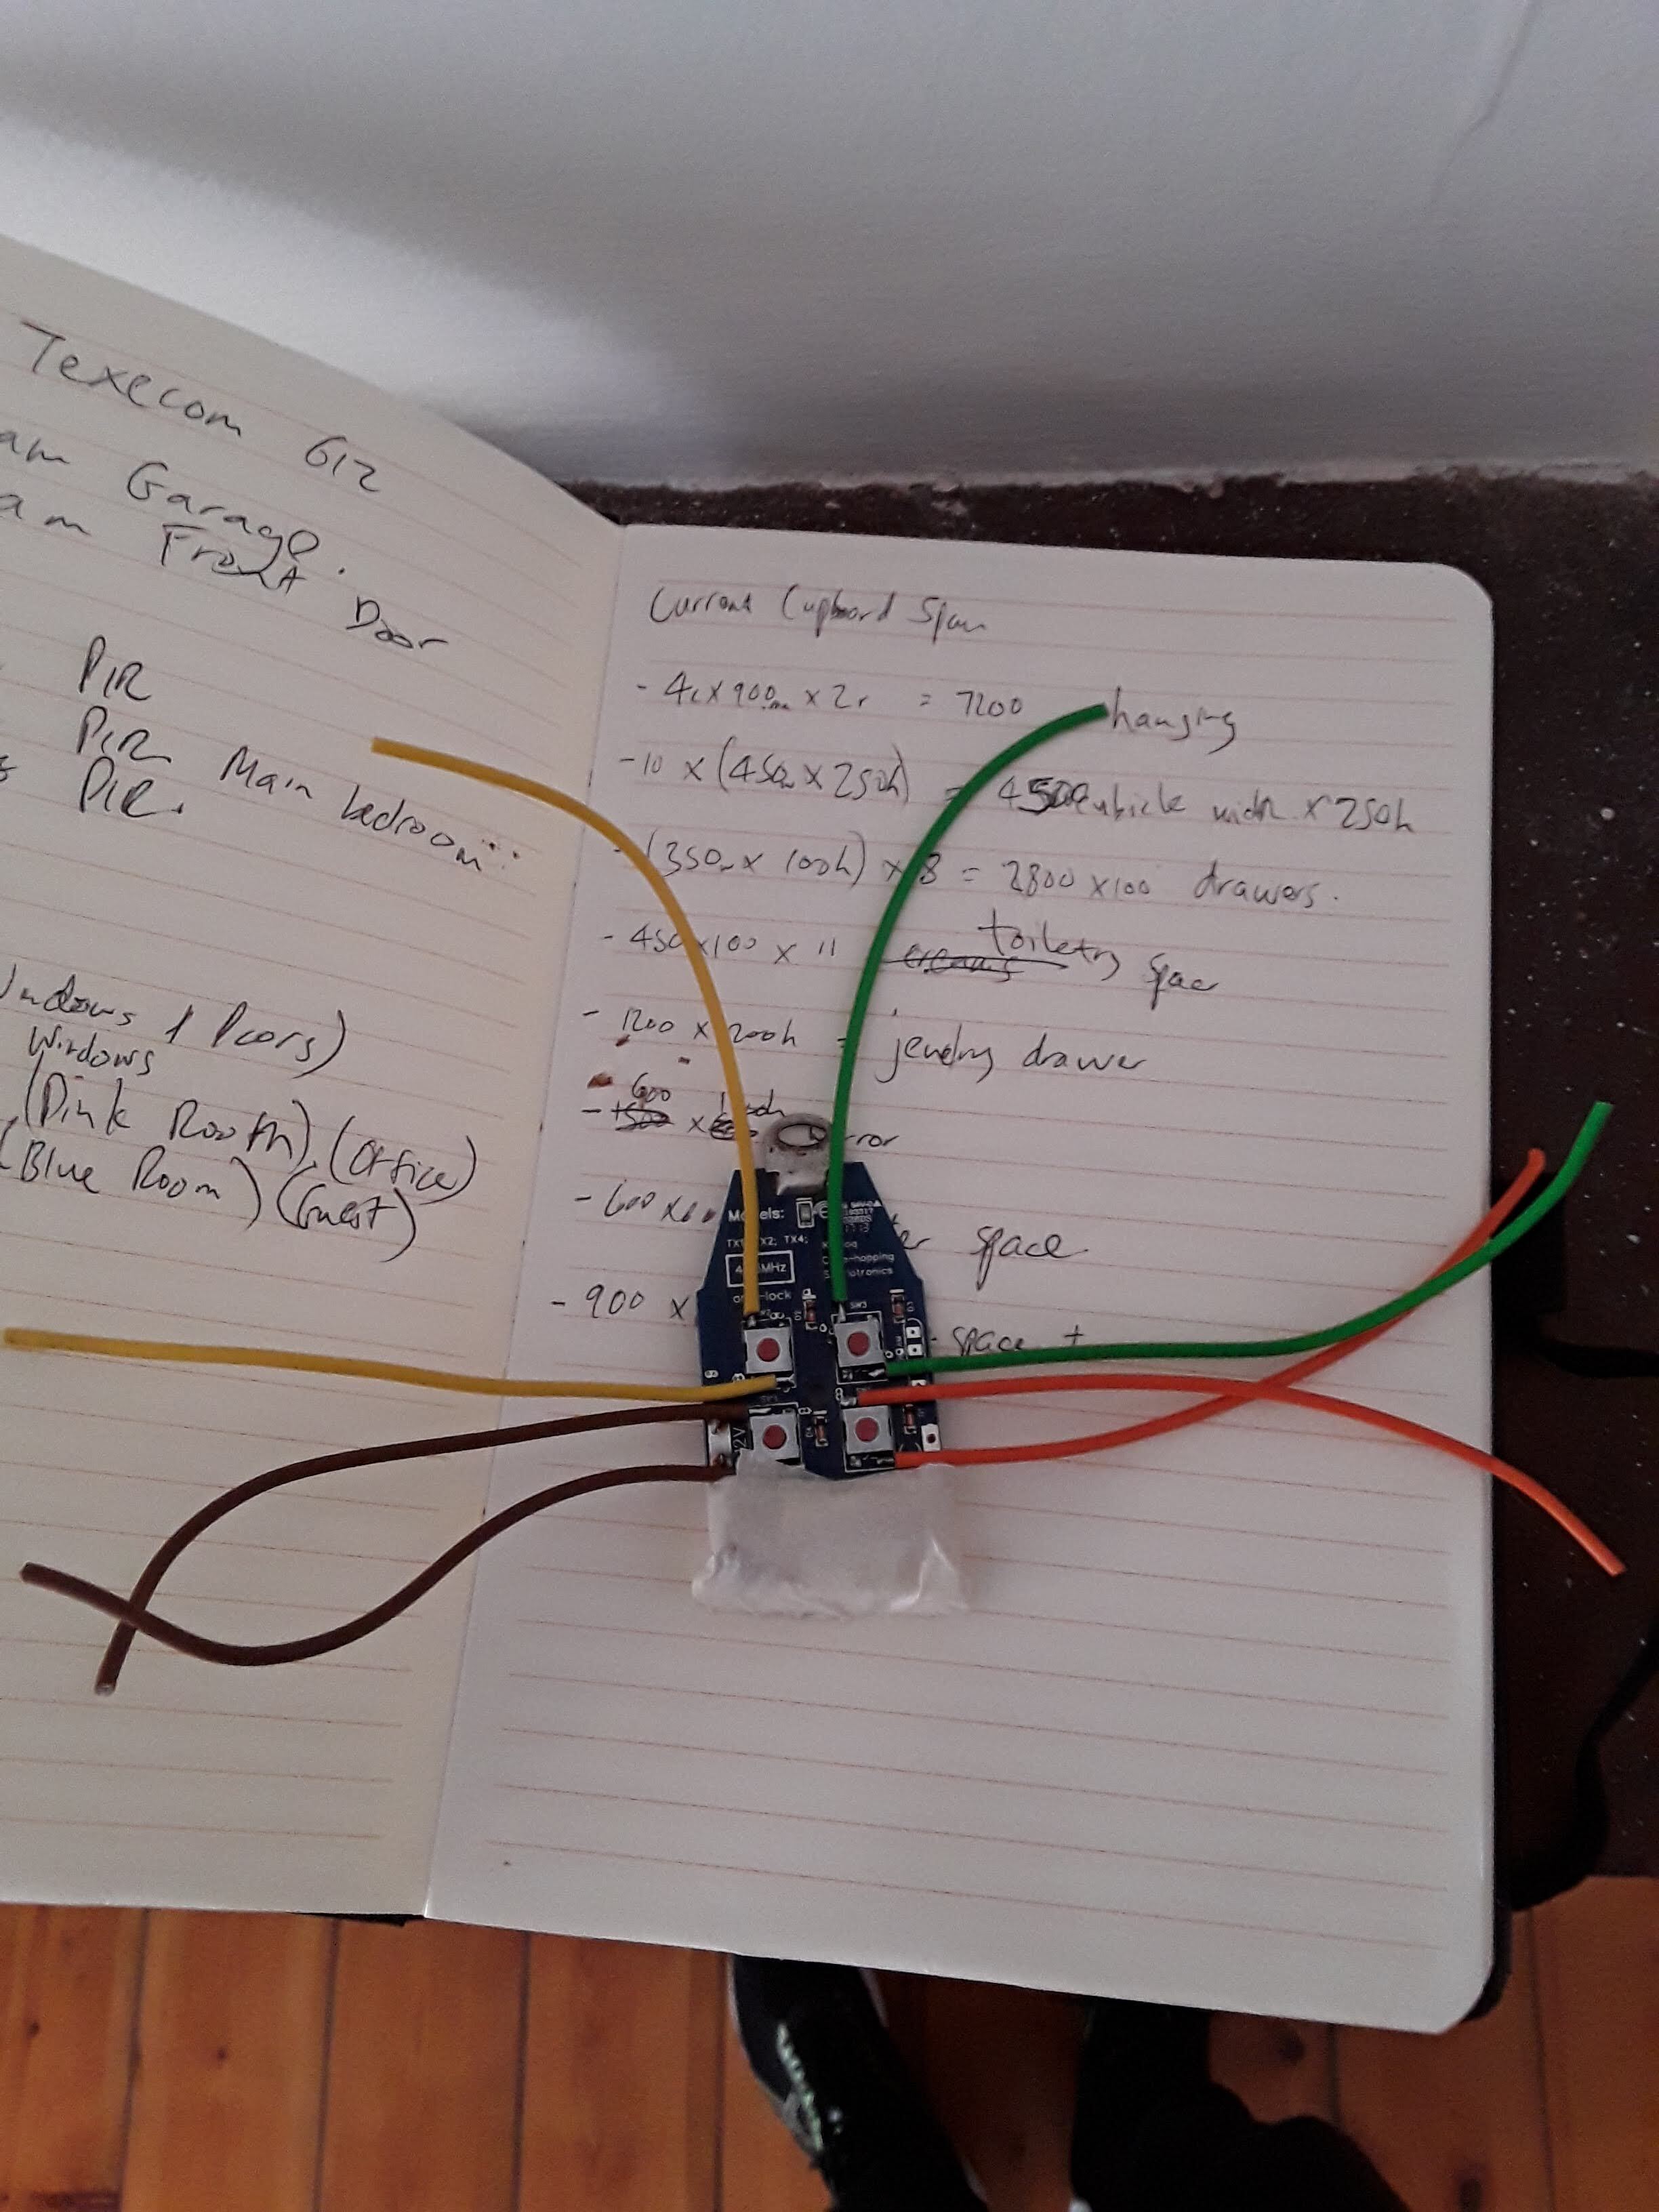 Texecom 612
am Garage.
am Front Door
PIR
PIR Main bedroom
PIR.
Windows / Doors)
Windows
(Pink Room), (Office)
(Blue Room) (Guest)
Current Cupboard Span
- 4c x 900mm x 2r = 7200 hanging
- 10 x (450w x 250h) = 4500 cubicle width x 250h
- (350w x 100h) x 8 = 2800 x100 drawers.
- 450 x100 x 11 toiletry space
- 1200 x 200h = jewelry drawer
- 600 x
- 600 x space
- 900 x space +
Models:
TX4;
MHz
-hopping
SW3
2V